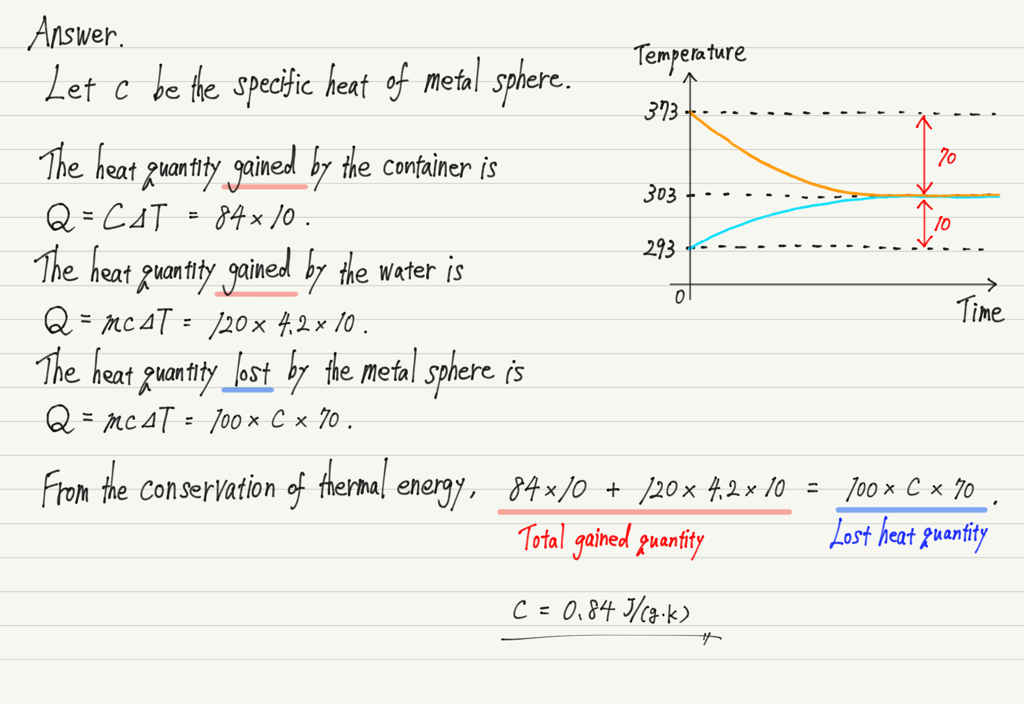 Answer.
Let c be the specific heat of metal sphere.
The heat quantity gained by the container is
Q = CΔT = 84 × 10.
The heat quantity gained by the water is
Q = mcΔT = 120 × 4.2 × 10.
The heat quantity lost by the metal sphere is
Q = mcΔT = 100 × C × 70.
From the conservation of thermal energy, 84 × 10 + 120 × 4.2 × 10 = 100 × C × 70.
Total gained quantity
Lost heat quantity
C = 0.84 J/(g·k)
Temperature
373
70
303
10
293
0
Time